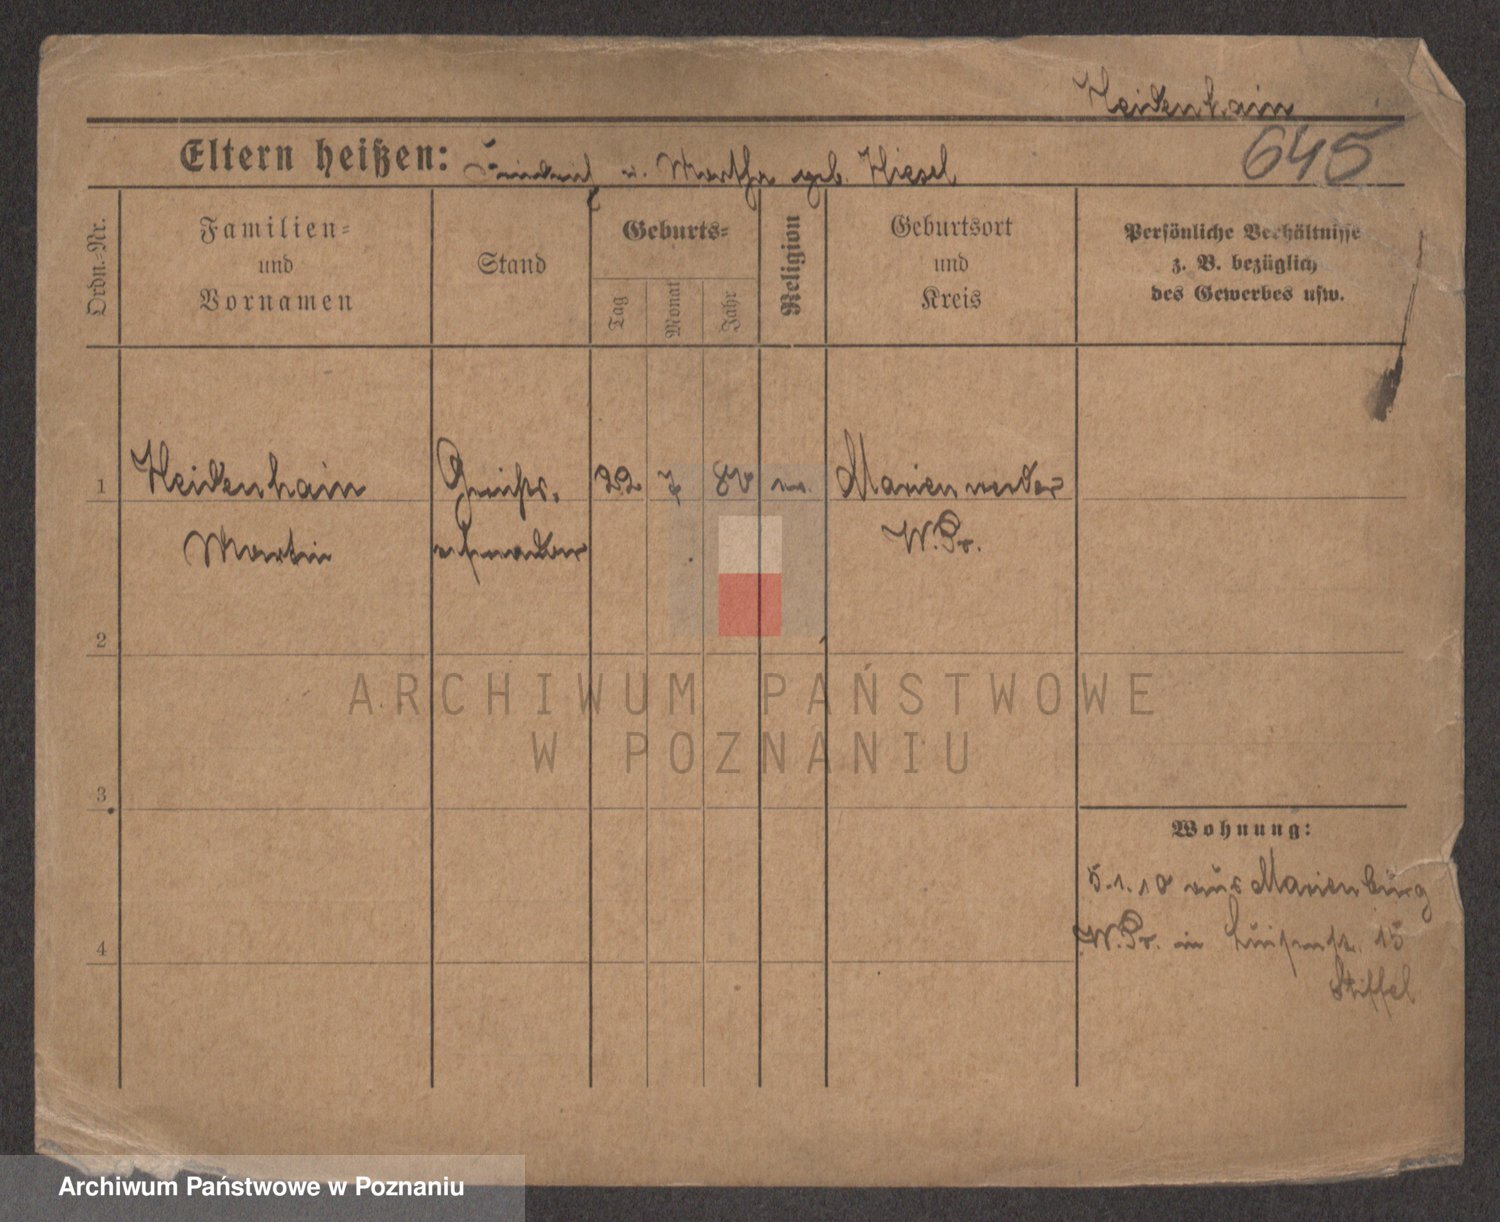 Heidenhain
645
Eltern heißen: Friedrich u. Martha geb. Hiesel
Ordn.-Nr.
Familien-
und
Vornamen
Stand
Geburts-
Tag
Monat
Jahr
Religion
Geburtsort
und
Kreis
Persönliche Verhältnisse
z. B. bezüglich
des Gewerbes usw.
1
Heidenhain
Martin
Gerichts-
22 7 80
Marienwerder
W. Pr.
2
ARCHIWUM PAŃSTWOWE
W POZNANIU
3
Wohnung:
5.1.10 aus Marienburg
W. Pr. in Luisenstr. 15
Stiffel
4
Archiwum Państwowe w Poznaniu